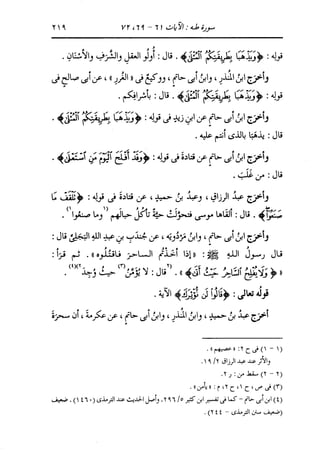 سورة طه : الآيات ٦١ - ٦٩ ، ٧٢ ٢١٩
قوله : ﴿ وَيَذْهَبَا بِطَرِيقَتِكُمُ الْمُثْلَىٰ ﴾ . قال : أولُو العقلِ والشرفِ والأسنانِ .
وأخرَج ابنُ المنذرِ ، وابنُ أبي حاتمٍ ، ووكيعٌ في « الغررِ » ، عن أبي صالحٍ في
قوله : ﴿ وَيَذْهَبَا بِطَرِيقَتِكُمُ الْمُثْلَىٰ ﴾ . قال : بأشرافِكم .
وأخرَج ابنُ أبي حاتمٍ عن ابنِ زيدٍ في قوله : ﴿ وَيَذْهَبَا بِطَرِيقَتِكُمُ الْمُثْلَىٰ ﴾ .
قال : يذهبا بالذى أنتم عليه .
وأخرَج ابنُ أبي حاتمٍ عن قتادةَ في قوله : ﴿ وَقَدْ أَفْلَحَ الْيَوْمَ مَنِ اسْتَعْلَىٰ ﴾ .
قال : من غلَب .
وأخرَج عبدُ الرزاقِ ، وعبدُ بنُ حميدٍ ، عن قتادةَ في قوله : ﴿ تَلْقَفْ مَا
صَنَعُوا ﴾ . قال : ألقاها موسى فتحوَّلت حيَّةً تأكُلُ حبالَهم (١) وما صنَعوا (١) .
وأخرَج ابنُ أبي حاتمٍ ، وابنُ مَرْدُويَه ، عن جُنْدَبِ بنِ عبدِ اللهِ البَجَليِّ قال :
قال رسولُ اللهِ ﷺ : « إذا أخَذتُم الساحرَ فاقتُلوه » . ثم قرَأ :
« ﴿ وَلَا يُفْلِحُ السَّاحِرُ حَيْثُ أَتَىٰ ﴾ » . (٢) قال : لا يُؤْمَنُ (٣) حيثُ وُجِد (٢)(٤) .
قوله تعالى : ﴿ قَالُوا لَن نُّؤْثِرَكَ ﴾ الآية .
أخرَج عبدُ بنُ حميدٍ ، وابنُ المنذرِ ، وابنُ أبي حاتمٍ ، عن عكرمةَ ، أن سحرةَ
(١ - ١) في ح ٢ : « عصيهم » .
والأثر عند عبد الرزاق ١٩/٢ .
(٢ - ٢) سقط من : ر ٢ .
(٣) في ص ، ح ١ ، ح ٢ ، م : « يأمن » .
(٤) ابن أبي حاتم - كما في تفسير ابن كثير ٢٩٦/٥ . وأصل الحديث عند الترمذى (١٤٦٠) . ضعيف
(ضعيف سنن الترمذى - ٢٤٤) .